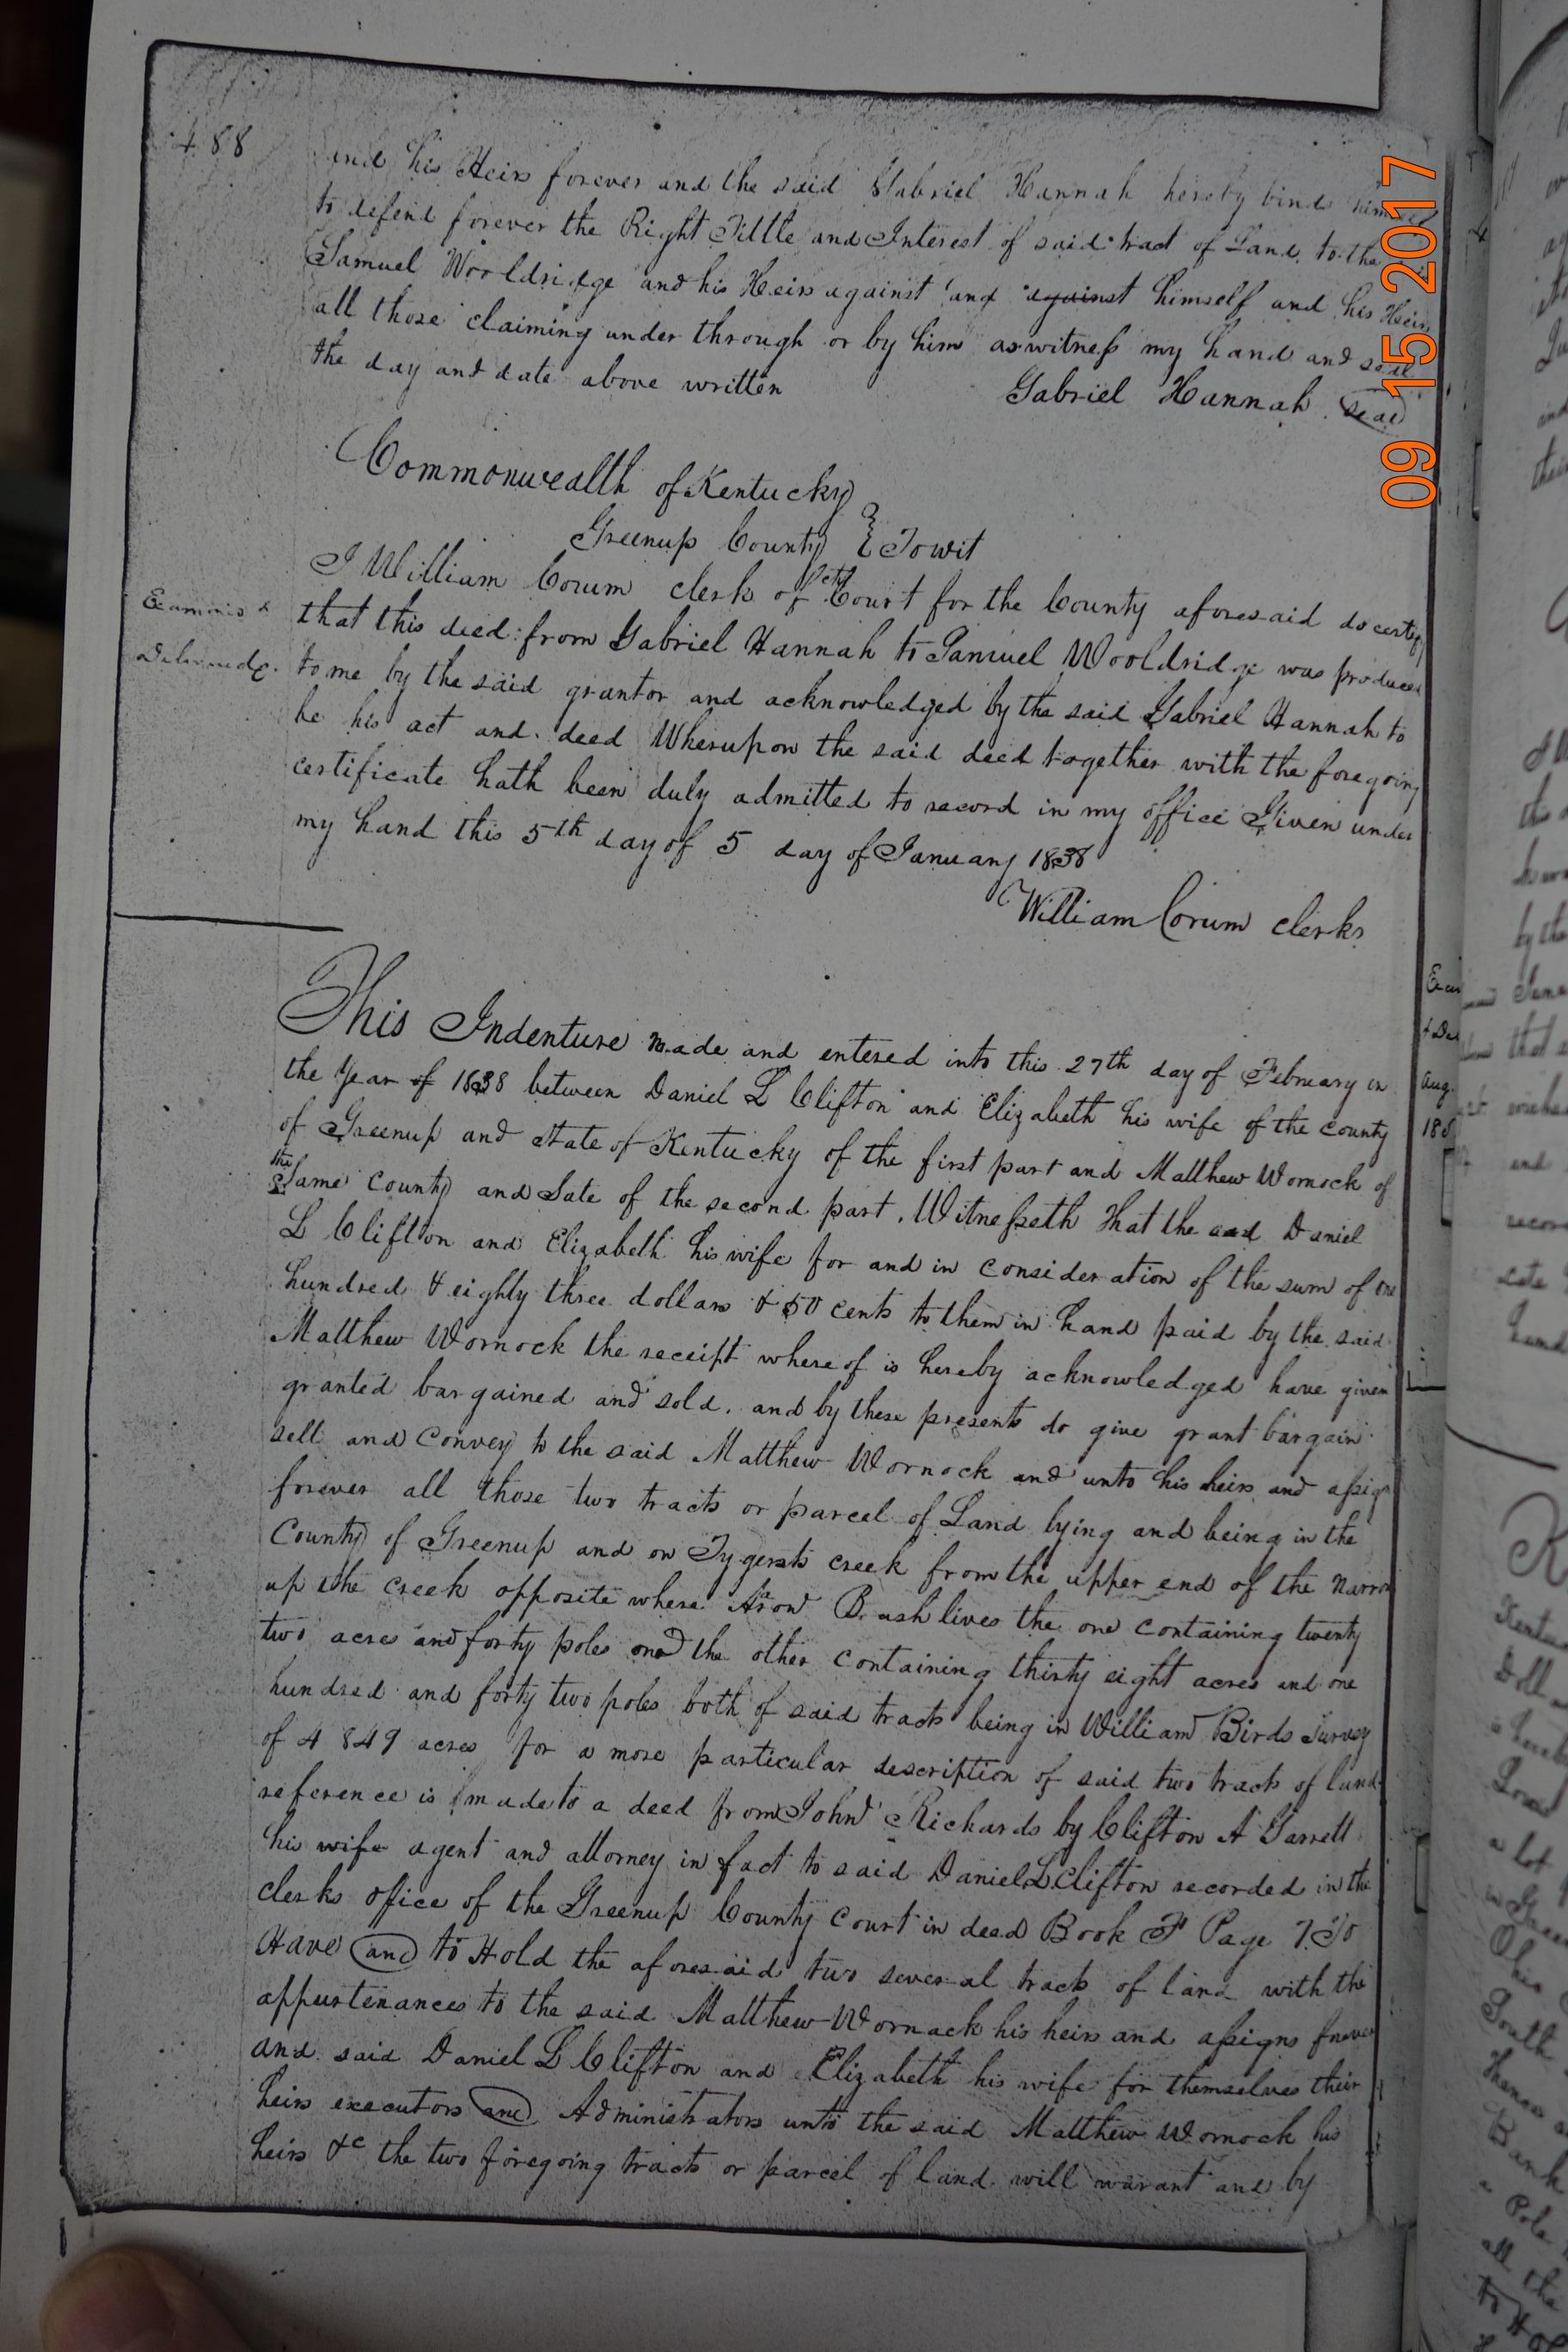 488
and his Heirs forever and the said Gabriel Hannah hereby binds himself
to defend forever the Right Tittle and Interest of said tract of Land to the
Samuel Wooldridge and his Heirs against and against himself and his Heirs
all those claiming under through or by him as witness my hand and seal
the day and date above written
Gabriel Hannah seal
Commonwealth of Kentucky
Greenup County } Towit
I William Corum clerk of Court for the County aforesaid do certify
that this deed from Gabriel Hannah to Samuel Wooldridge was produced
to me by the said grantor and acknowledged by the said Gabriel Hannah to
be his act and deed Wherupon the said deed together with the foregoing
certificate hath been duly admitted to record in my office Given under
my hand this 5th day of 5 day of January 1838
William Corum clerk
This Indenture made and entered into this 27th day of February in
the Year of 1838 between Daniel L Clifton and Elizabeth his wife of the county
of Greenup and State of Kentucky of the first part and Matthew Wornock of
the Same County and Sate of the second part. Witnesseth That the Daniel
L Clifton and Elizabeth his wife for and in consideration of the sum of one
hundred & eighty three dollars & 50 cents to them in hand paid by the said
Matthew Wornock the receipt where of is hereby acknowledged have given
granted bargained and sold. and by these presents do give grant bargain
sell and convey to the said Matthew Wornock and unto his heirs and assigns
forever all those two tracts or parcel of Land lying and being in the
County of Greenup and on Tygerts creek from the upper end of the narrow
up the creek opposite where Brush lives the one containing twenty
two acres and forty poles and the other containing thirty eight acres and one
hundred and forty two poles both of said tracts being in William Birds Survey
of 4849 acres for a more particular description of said two tracts of land
reference is made to a deed from John Richards by Clifton A Garrett
his wife agent and attorney in fact to said Daniel L Clifton recorded in the
clerks office of the Greenup County Court in deed Book F Page
Have and to Hold the aforesaid two several tracts of land with the
appurtenances to the said Matthew Wornack his heirs and assigns forever
and said Daniel L Clifton and Elizabeth his wife for themselves their
heirs executors and Administrators unto the said Matthew Wornock his
heirs &c the two foregoing tracts or parcel of land will warant and by
09 15 2017